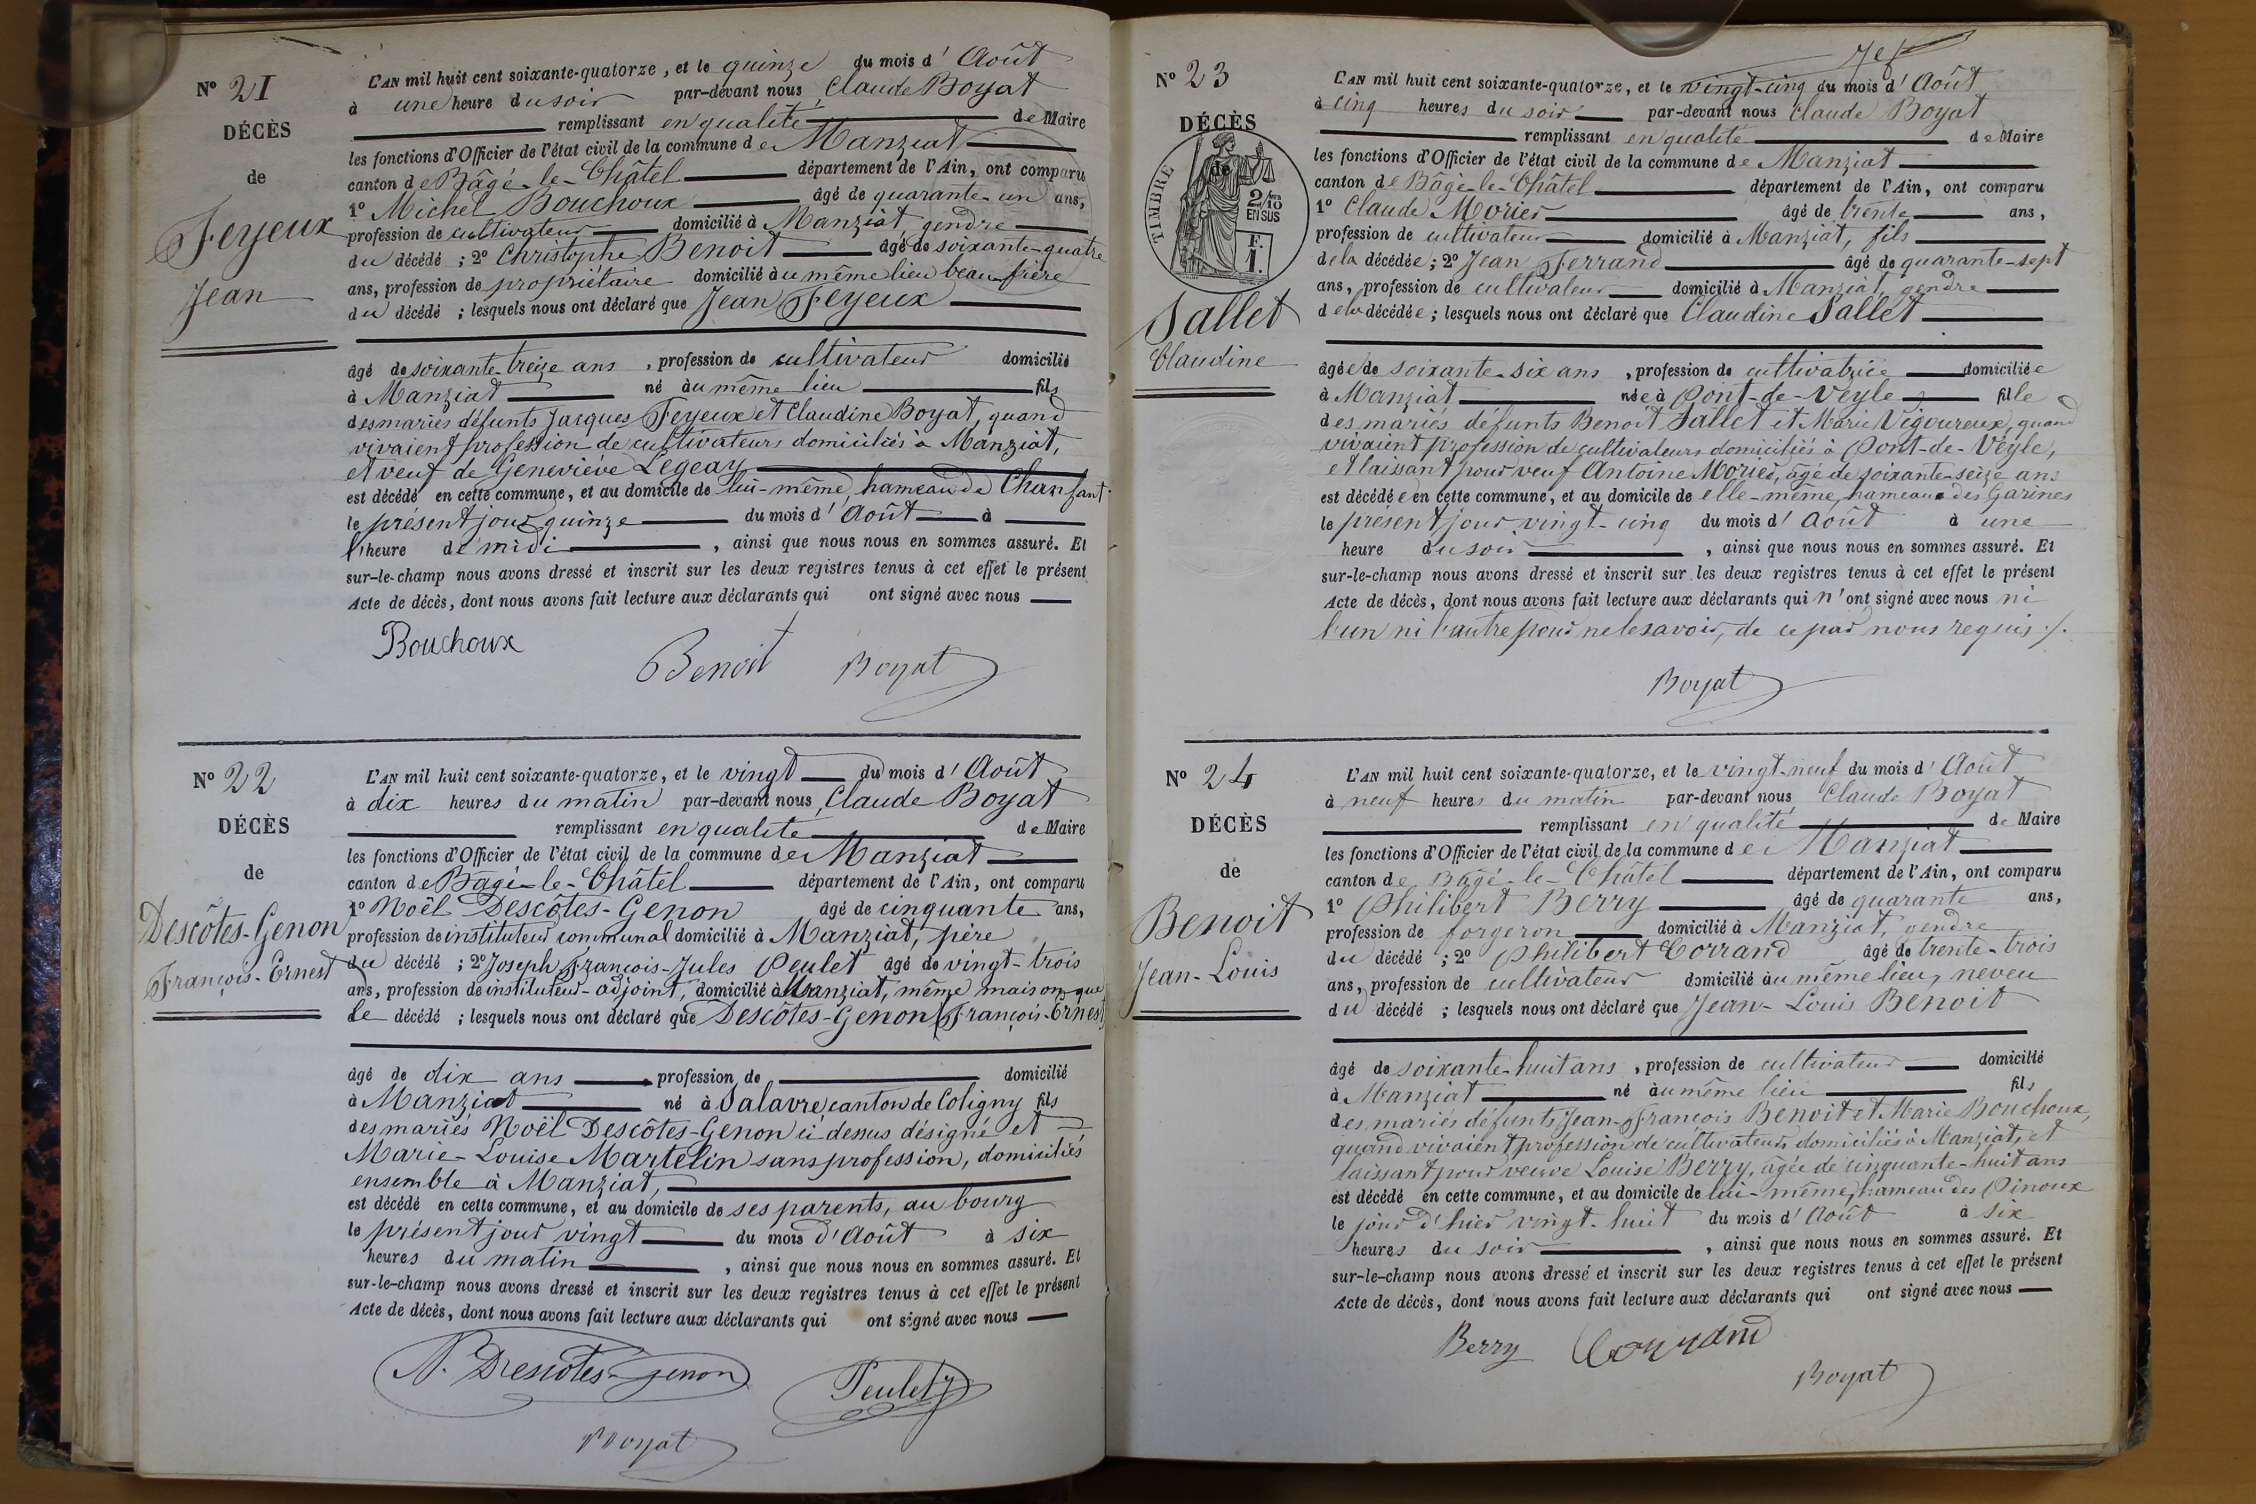 N° 21
DÉCÈS
de
Feyeux
Jean
L'AN mil huit cent soixante-quatorze, et le quinze du mois d' Août
à une heure du soir par-devant nous Claude Boyat
remplissant en qualité de Maire
les fonctions d'Officier de l'état civil de la commune de Manziat
canton de Bâgé-le-Châtel département de l'Ain, ont comparu
1° Michel Bouchoux âgé de quarante-un ans,
profession de cultivateur domicilié à Manziat, gendre
du décédé ; 2° Christophe Benoit âgé de soixante-quatre
ans, profession de propriétaire domicilié au même lieu beau frère
du décédé ; lesquels nous ont déclaré que Jean Feyeux
âgé de soixante-treize ans , profession de cultivateur domicilié
à Manziat né au même lieu fils
des mariés défunts Jacques Feyeux et Claudine Boyat, quand
vivaient profession de cultivateurs domiciliés à Manziat,
et veuf de Geneviève Legeay
est décédé en cette commune, et au domicile de lui-même, hameau de Chanfant
le présent jour quinze du mois d' Août à
l'heure de midi , ainsi que nous nous en sommes assuré. Et
sur-le-champ nous avons dressé et inscrit sur les deux registres tenus à cet effet le présent
Acte de décès, dont nous avons fait lecture aux déclarants qui ont signé avec nous
Bouchoux
Benoit Boyat
N° 22
DÉCÈS
de
Descôtes-Genon
François-Ernest
L'AN mil huit cent soixante-quatorze, et le vingt du mois d' Août
à dix heures du matin par-devant nous Claude Boyat
remplissant en qualité de Maire
les fonctions d'Officier de l'état civil de la commune de Manziat
canton de Bâgé-le-Châtel département de l'Ain, ont comparu
1° Noël Descôtes-Genon âgé de cinquante ans,
profession de instituteur communal domicilié à Manziat, père
du décédé ; 2° Joseph François-Jules Peulet âgé de vingt-trois
ans, profession de instituteur-adjoint, domicilié à Manziat, même maison que
le décédé ; lesquels nous ont déclaré que Descôtes-Genon (François-Ernest)
âgé de dix ans profession de domicilié
à Manziat né à Salavre canton de Coligny fils
des mariés Noël Descôtes-Genon ci dessus désigné et
Marie-Louise Martelin sans profession, domiciliés
ensemble à Manziat,
est décédé en cette commune, et au domicile de ses parents, au bourg
le présent jour vingt du mois d'Août à six
heures du matin , ainsi que nous nous en sommes assuré. Et
sur-le-champ nous avons dressé et inscrit sur les deux registres tenus à cet effet le présent
Acte de décès, dont nous avons fait lecture aux déclarants qui ont signé avec nous
N. Descôtes-Genon
Peulet
Boyat
N° 23
DÉCÈS
de
TIMBRE
2/10
EN SUS
F.
1.
Sallet
Claudine
L'AN mil huit cent soixante-quatorze, et le vingt-cinq du mois d' Août
à cinq heures du soir par-devant nous Claude Boyat
remplissant en qualité de Maire
les fonctions d'Officier de l'état civil de la commune de Manziat
canton de Bâgé-le-Châtel département de l'Ain, ont comparu
1° Claude Morier âgé de trente ans,
profession de cultivateur domicilié à Manziat, fils
de la décédée ; 2° Jean Ferrand âgé de quarante-sept
ans, profession de cultivateur domicilié à Manziat, gendre
de la décédée ; lesquels nous ont déclaré que Claudine Sallet
âgée de soixante-six ans , profession de cultivatrice domiciliée
à Manziat née à Pont-de-Veyle fille
des mariés défunts Benoît Sallet et Marie Vigoureux, quand
vivaient profession de cultivateurs domiciliés à Pont-de-Veyle,
et laissant pour veuf Antoine Morier, âgé de soixante-seize ans
est décédée en cette commune, et au domicile de elle-même, hameau des Garines
le présent jour vingt-cinq du mois d' Août à une
heure du soir , ainsi que nous nous en sommes assuré. Et
sur-le-champ nous avons dressé et inscrit sur les deux registres tenus à cet effet le présent
Acte de décès, dont nous avons fait lecture aux déclarants qui n'ont signé avec nous ni
l'un ni l'autre pour ne le savoir, de ce par nous requis ./.
Boyat
N° 24
DÉCÈS
de
Benoit
Jean-Louis
L'AN mil huit cent soixante-quatorze, et le vingt-neuf du mois d' Août
à neuf heures du matin par-devant nous Claude Boyat
remplissant en qualité de Maire
les fonctions d'Officier de l'état civil de la commune de Manziat
canton de Bâgé-le-Châtel département de l'Ain, ont comparu
1° Philibert Berry âgé de quarante ans,
profession de forgeron domicilié à Manziat, gendre
du décédé ; 2° Philibert Corrand âgé de trente-trois
ans, profession de cultivateur domicilié au même lieu, neveu
du décédé ; lesquels nous ont déclaré que Jean-Louis Benoit
âgé de soixante-huit ans , profession de cultivateur domicilié
à Manziat né au même lieu fils
des mariés défunts Jean-François Benoit et Marie Bouchoux,
quand vivaient profession de cultivateurs domiciliés à Manziat, et
laissant pour veuve Louise Berry, âgée de cinquante-huit ans
est décédé en cette commune, et au domicile de lui-même, hameau des Pinoux
le jour d'hier vingt-huit du mois d' Août à six
heures du soir , ainsi que nous nous en sommes assuré. Et
sur-le-champ nous avons dressé et inscrit sur les deux registres tenus à cet effet le présent
Acte de décès, dont nous avons fait lecture aux déclarants qui ont signé avec nous
Berry Corrand
Boyat